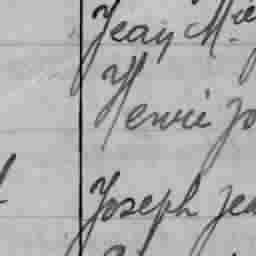 Jean M.ie
Henri Jo
Joseph Jea